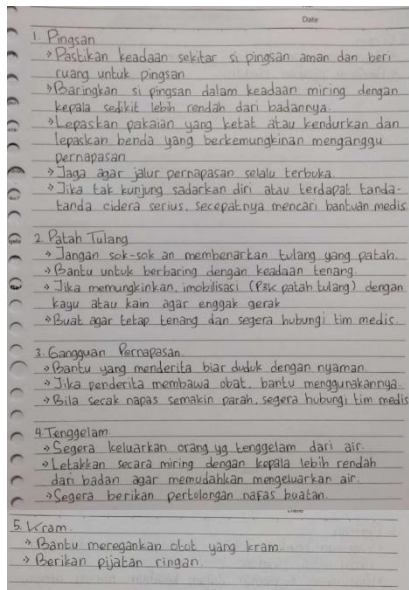 Date
1. Pingsan
→ Pastikan keadaan sekitar si pingsan aman dan beri
ruang untuk pingsan
→ Baringkan si pingsan dalam keadaan miring dengan
kepala sedikit lebih rendah dari badannya.
→ Lepaskan pakaian yang ketat atau kendurkan dan
lepaskan benda yang berkemungkinan menganggu
pernapasan
→ Jaga agar jalur pernapasan selalu terbuka.
→ Jika tak kunjung sadarkan diri atau terdapat tanda-
tanda cidera serius, secepatnya mencari bantuan medis
2. Patah Tulang
→ Jangan sok-sok an membenarkan tulang yang patah.
→ Bantu untuk berbaring dengan keadaan tenang.
→ Jika memungkinkan, imobilisasi (P3K patah tulang) dengan
kayu atau kain agar enggak gerak
→ Buat agar tetap tenang dan segera hubungi tim medis.
3. Gangguan Pernapasan.
→ Bantu yang menderita biar duduk dengan nyaman.
→ Jika penderita membawa obat, bantu menggunakannya.
→ Bila secak napas semakin parah, segera hubungi tim medis
4. Tenggelam
→ Segera keluarkan orang yg tenggelam dari air.
→ Letakkan secara miring dengan kepala lebih rendah
dari badan agar memudahkan mengeluarkan air.
→ Segera berikan pertolongan nafas buatan.
5. Kram
→ Bantu meregangkan otot yang kram.
→ Berikan pijatan ringan.